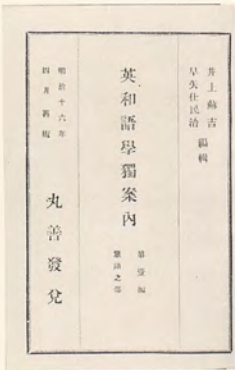 井上蘇吉
早矢仕民治
編輯
英和語學獨案内
單語之部
明治十六年
四月新版
丸善發兌